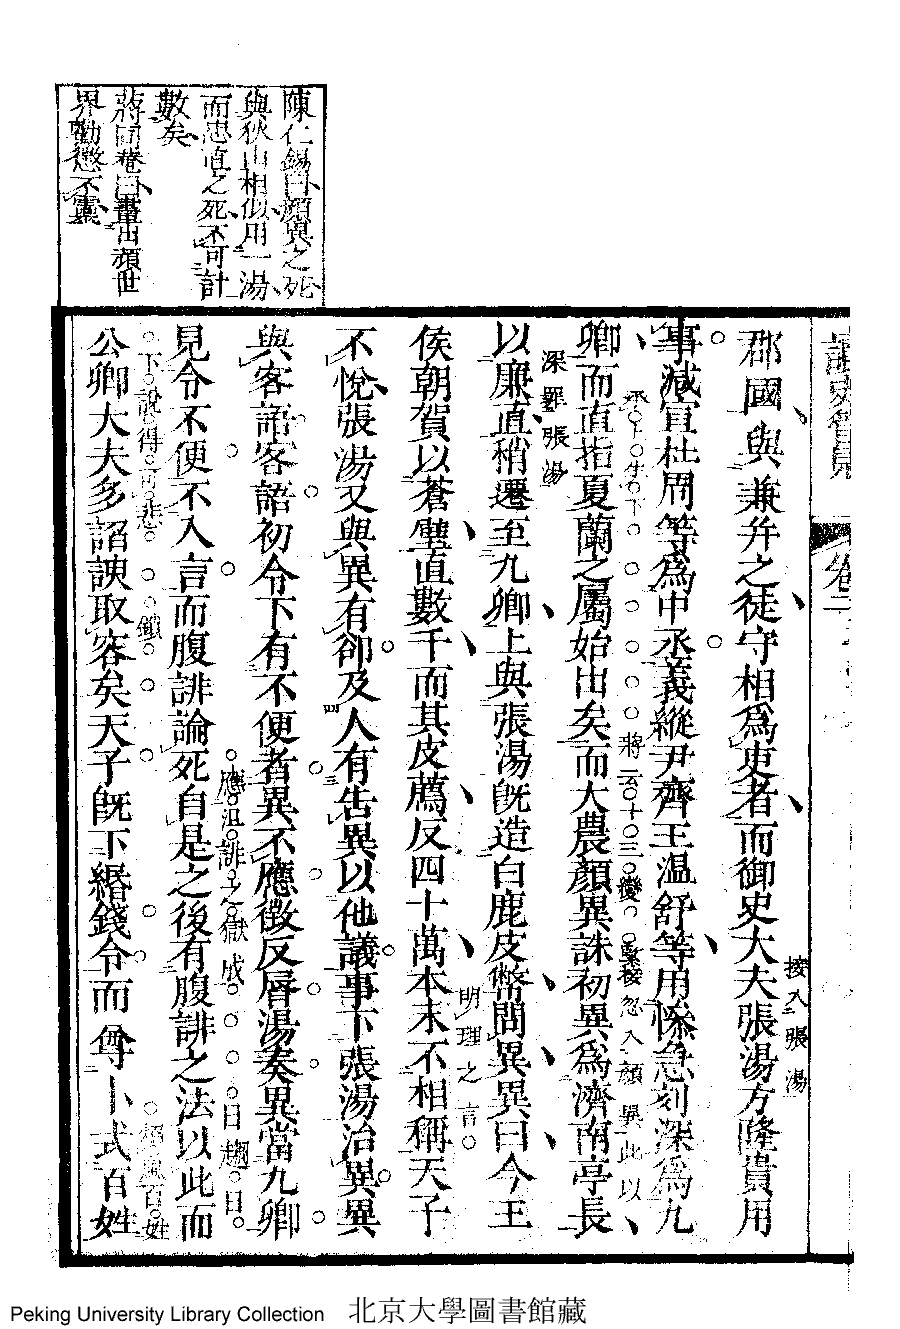 陳仁錫曰顏異之死
與狄山相似用一湯
而忠直之死不可計
數矣
蔣同菴曰畫出頹世
界勸懲不靈
卷二
郡國與兼并之徒守相為吏者而御史大夫張湯方隆貴用
接入張湯
事減宣杜周等為中丞義縱尹齊王溫舒等用慘急刻深為九
卿而直指夏蘭之屬始出矣而大農顏異誅初異為濟南亭長
緊接忽入顏異此以
深罪張湯
以廉直稍遷至九卿上與張湯既造白鹿皮幣問異異曰今王
侯朝賀以蒼璧直數千而其皮薦反四十萬本末不相稱天子
明理之言
不悅張湯又與異有卻及人有告異以他議事下張湯治異異
與客語客語初令下有不便者異不應微反唇湯奏異當九卿
見令不便不入言而腹誹論死自是之後有腹誹之法以此而
應沮誹之獄成
日趨日
下說得可悲
公卿大夫多諂諛取容矣天子既下緡錢令而尊卜式百姓
Peking University Library Collection 北京大學圖書館藏